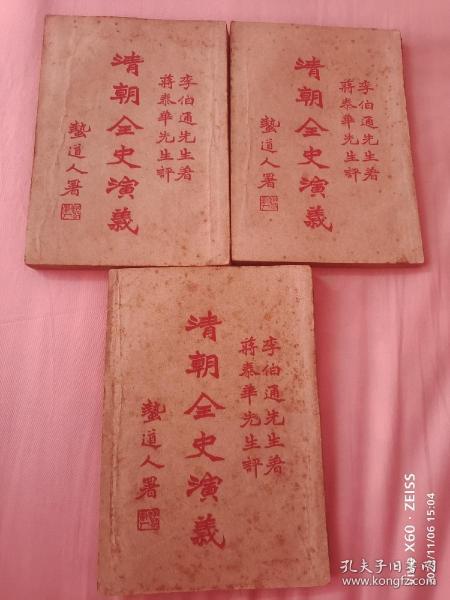 李伯通先生著
蔣泰華先生評
清朝全史演義
蟄道人署
李伯通先生著
蔣泰華先生評
清朝全史演義
蟄道人署
李伯通先生著
蔣泰華先生評
清朝全史演義
蟄道人署
vivo X60 · ZEISS
2021/11/06 15:04
孔夫子旧书网
book.kongfz.com